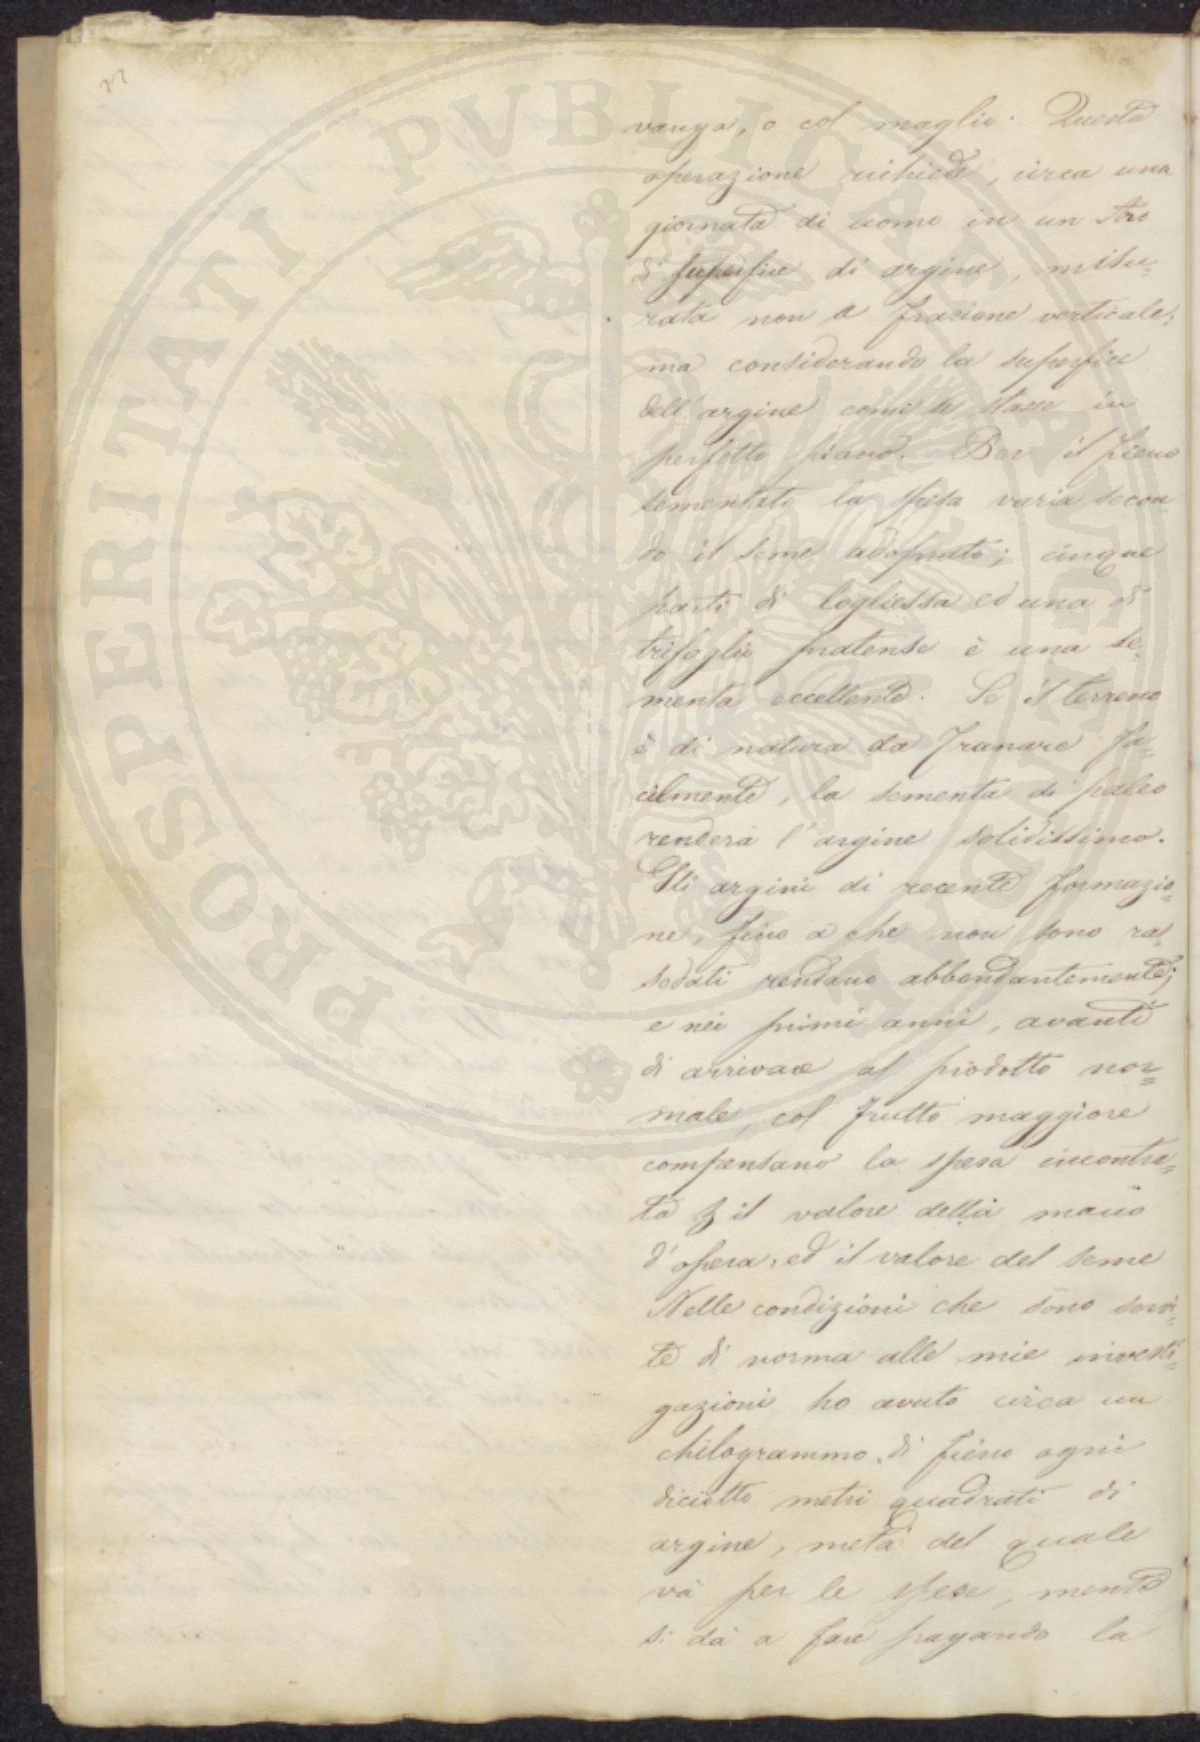 vanga, o col maglio. Questa
operazione richiede, circa una
giornata di uomo in un Aro
di superfice di argine, misu=
rata non a frazione verticale;
ma considerando la superfice
dell'argine come se stasse in
perfetto piano. Per il fieno
sementato la spesa varia secon=
do il seme adoprato; cinque
parti di logliessa ed una di
trifoglio pratense è una se=
menta eccellente. Se il terreno
è di natura da franare fa=
cilmente, la sementa di paleo
renderà l'argine solidissimo.
Gli argini di recente formazio=
ne, fino a che non sono ra=
sodati rendano abbondantemente;
e nei primi anni, avanti
di arrivare al prodotto nor=
male, col frutto maggiore
compensano la spesa incontra=
ta il valore della mano
d'opera, ed il valore del seme
Nelle condizioni che sono servi=
te di norma alle mie investi=
gazioni ho avuto circa un
chilogrammo di fieno ogni
diciotto metri quadrati di
argine, metà del quale
và per le spese, mentre
si dà a fare pagando la
PROSPERITATI PVBLICAE AVGENDAE